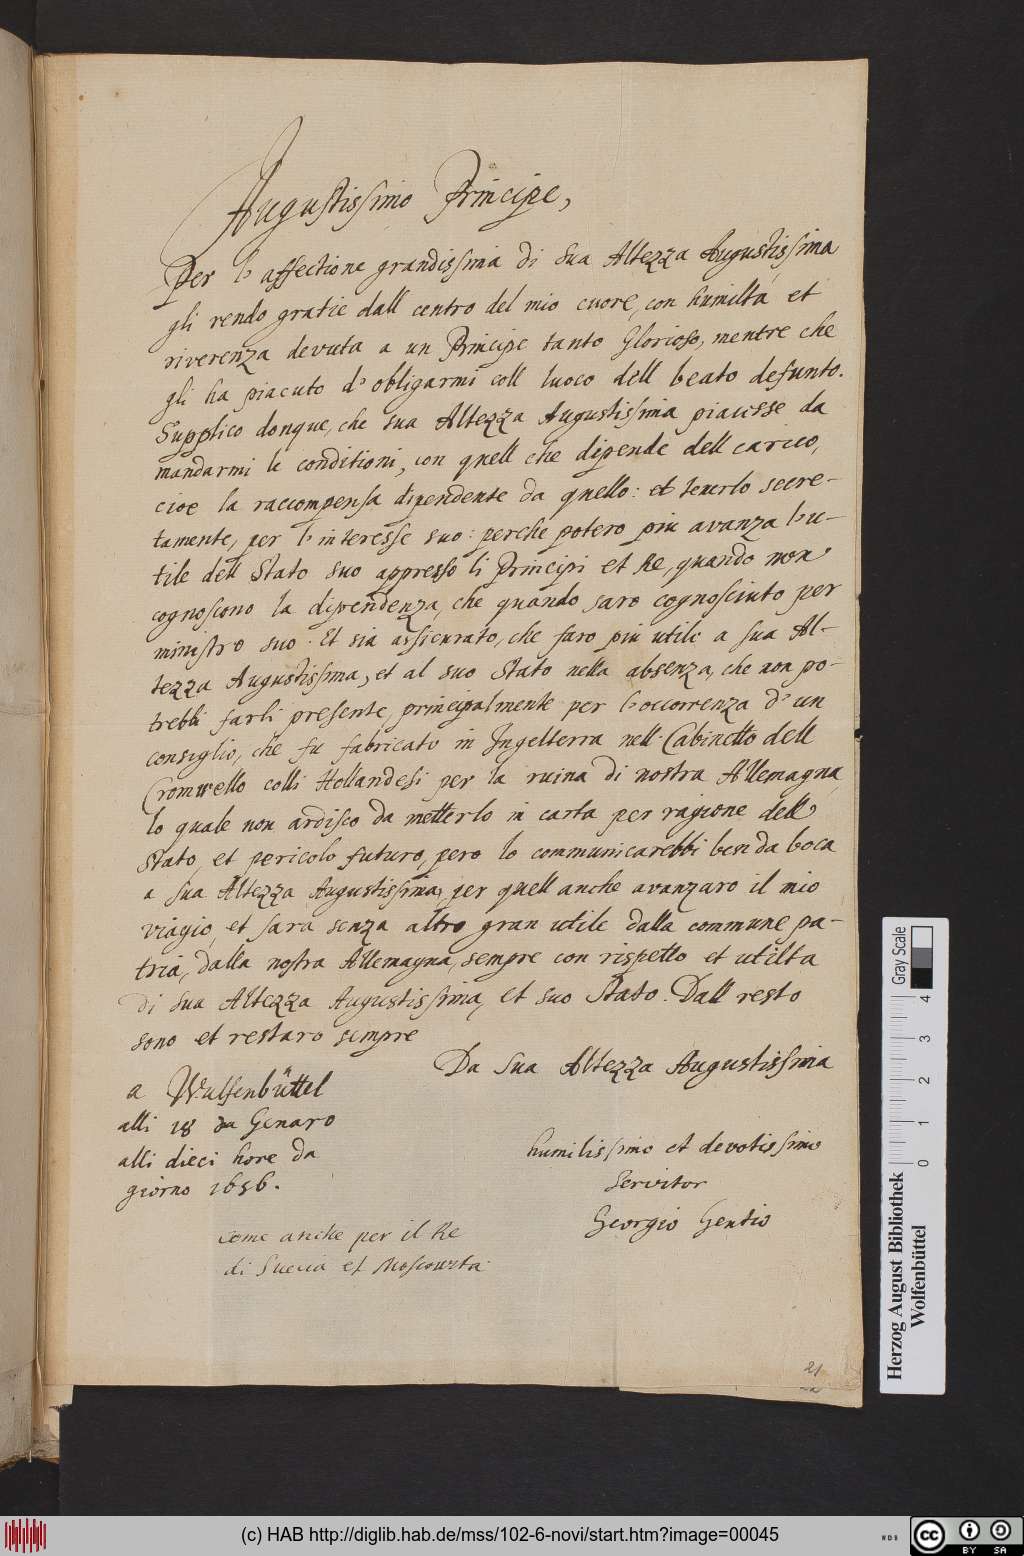 Augustissimo Principe,
Per l' affectione grandissima di sua Altezza Augustissima
gli rendo gratie dall centro del mio cuore, con humiltà et
riverenza devuta a un Principe tanto Glorioso, mentre che
gli ha piacuto d' obligarmi coll luoco dell beato defunto.
Supplico donque, che sua Altezza Augustissima piacesse da
mandarmi le conditioni, con quell che dipende dell carico,
cioe la raccompensa dipendente da quello: et tenerlo secre-
tamente, per l' interesse suo: perche potero piu avanza l'u-
tile dell Stato suo appresso li Principi et Re, quando non
cognoscono la dipendenza, che quando saro cognosciuto per
ministro suo. Et sia assicurato, che saro piu utile a sua Al-
tezza Augustissima, et al suo Stato nella absenza, che non po-
trebbi farli presente, principalmente per l'occorrenza d' un
consiglio, che fu fabricato in Ingelterra nell Cabinetto dell
Cromwello colli Hollandesi per la ruina di nostra Allemagna,
lo quale non ardisco da metterlo in carta per ragione dell
Stato, et pericolo futuro, pero lo communicarebbi ben da boca
a sua Altezza Augustissima, per quell anche avanzaro il mio
viagio, et sara senza altro gran utile dalla commune pa-
tria, dalla nostra Allemagna, sempre con rispetto et utilta
di sua Altezza Augustissima, et suo Stato. Dall resto
sono et restaro sempre
Da sua Altezza Augustissima
a Wulfenbüttel
alli 18 da Genaro
alli dieci hore da
giorno 1656.
humilissimo et devotissimo
Servitor
Georgio Gentio
come anche per il Re
di Suecia et Moscovita
21
Herzog August Bibliothek
Wolfenbüttel
0 1 2 3 4
Gray Scale
(c) HAB http://diglib.hab.de/mss/102-6-novi/start.htm?image=00045
WDB
cc BY SA